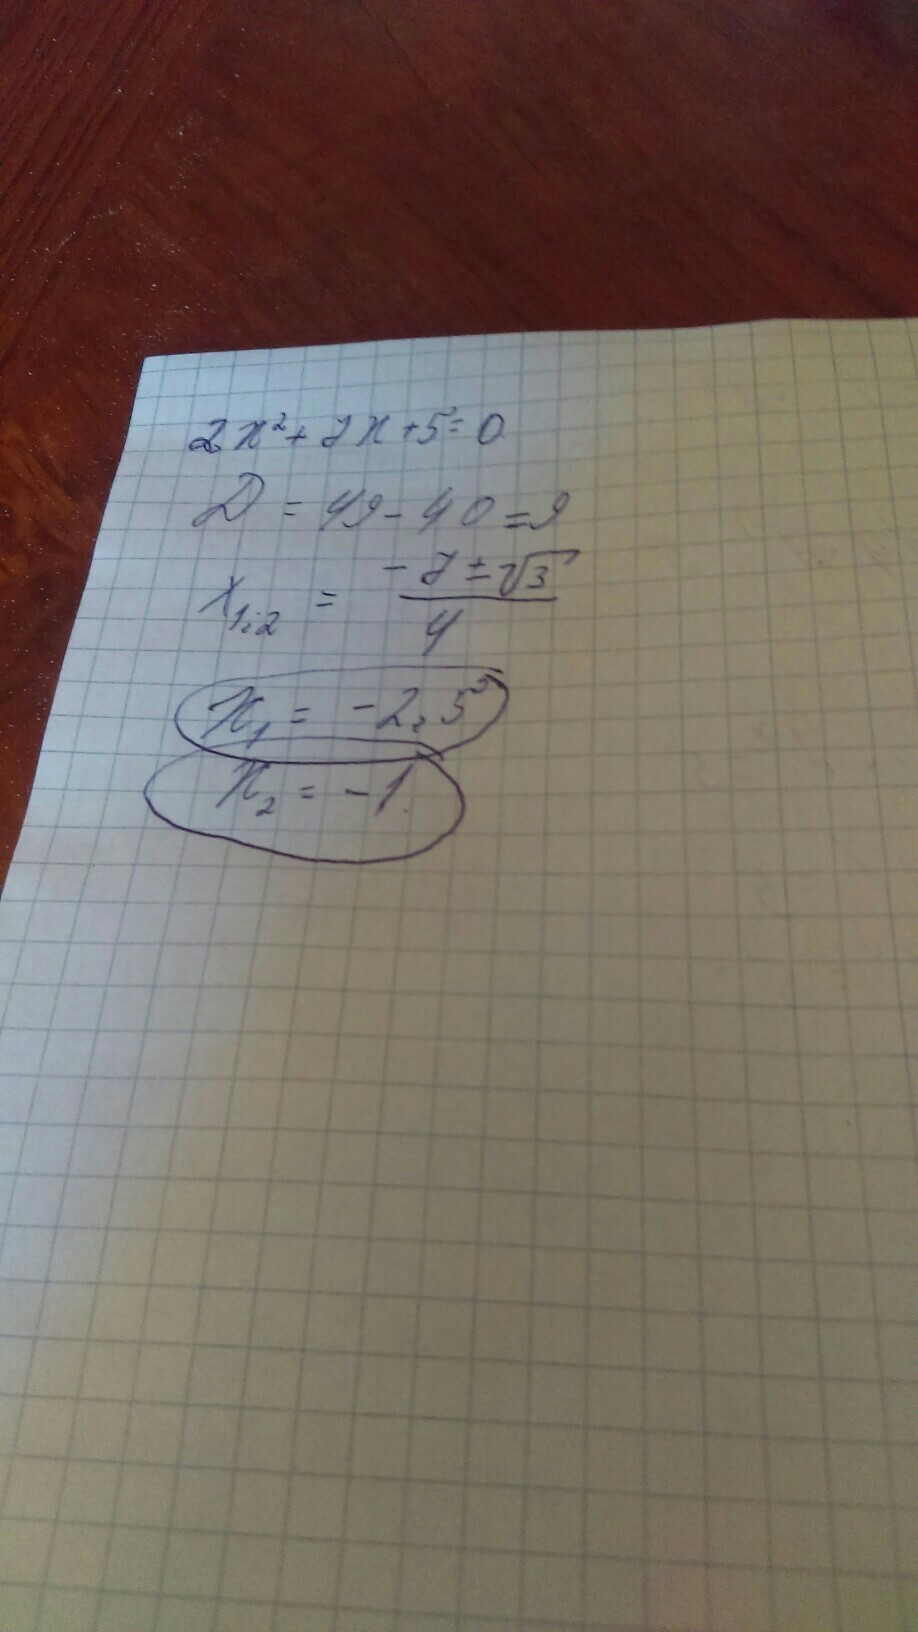 2x² + 7x + 5 = 0
D = 49 - 40 = 9
x₁,₂ = (-7 ± √3) / 4
x₁ = -2,5
x₂ = -1.